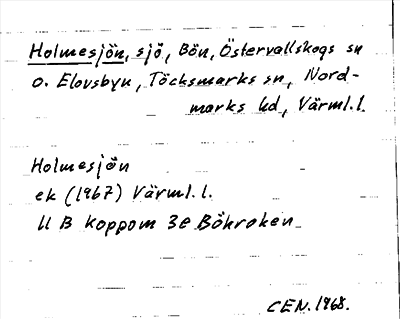 Holmesjön, sjö, Bön, Östervallskogs sn
o. Elovsbyn, Töcksmarks sn, Nord-
marks hd, Värml.l.
Holmesjön
ek (1967) Värml.l.
11 B Koppom 3e Böhroken
CEN. 1968.